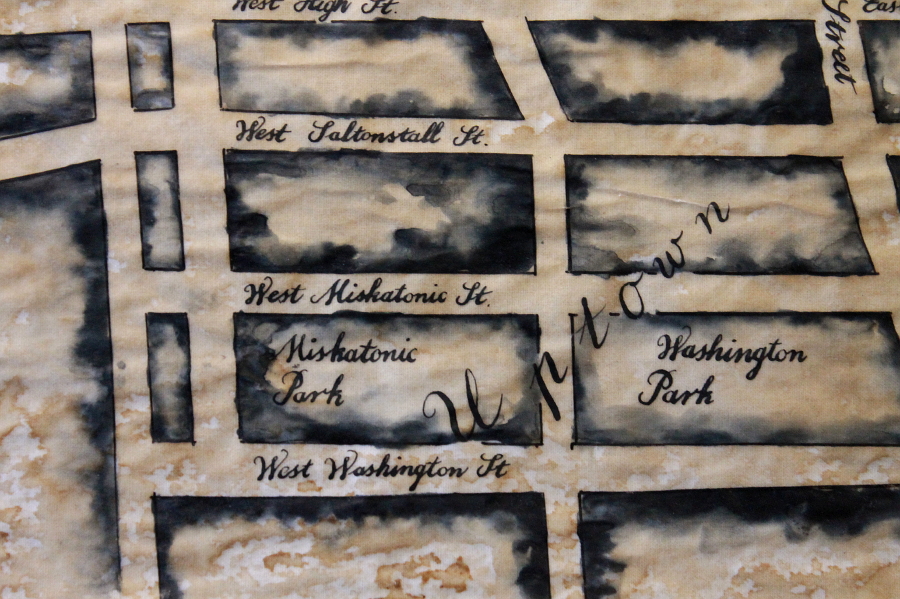 West High St.
Street
Eas
West Saltonstall St.
Uptown
West Miskatonic St.
Miskatonic
Park
Washington
Park
West Washington St